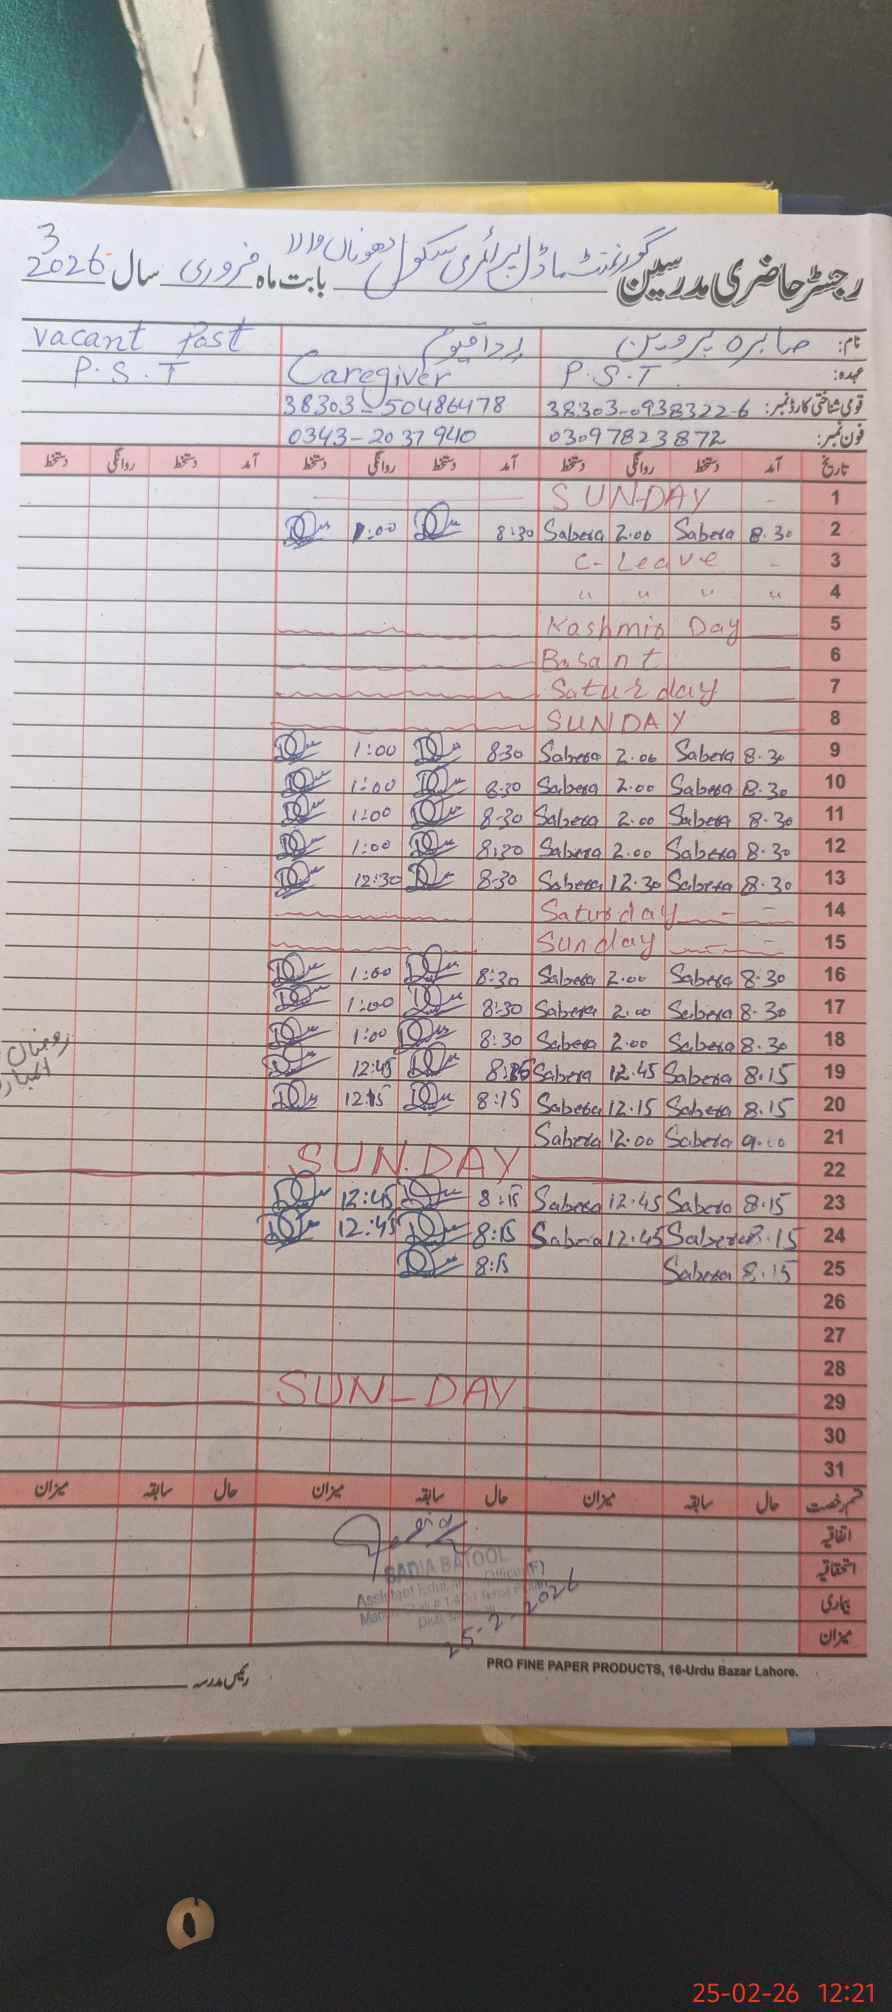 3
رجسٹر حاضری مدرسین گورنمنٹ ماڈل پرائمری سکول بابت ماہ فروری سال 2026
نام: صابرہ پروین Vacant Post
عہدہ: P.S.T Caregiver P.S.T
قومی شناختی کارڈ نمبر: 38303-0938322-6 38303-50486478
فون نمبر: 03097823872 0343-2037940
تاریخ آمد دستخط روانگی دستخط آمد دستخط روانگی دستخط آمد دستخط روانگی دستخط
1 SUNDAY
2 8.30 Sabera 2.00 Sabera 8:30 1:00
3 C-Leave
4 " " " "
5 Kashmir Day
6 Basant
7 Saturday
8 SUNDAY
9 8.30 Sabera 2.00 Sabera 8:30 1:00
10 8.30 Sabera 2.00 Sabera 8:30 1:00
11 8.30 Sabera 2.00 Sabera 8:30 1:00
12 8.30 Sabera 2.00 Sabera 8:30 1:00
13 8.30 Sabera 12.30 Sabera 8:30 12:30
14 Saturday
15 Sunday
16 8.30 Sabera 2.00 Sabera 8:30 1:00
17 8.30 Sabera 2.00 Sabera 8:30 1:00
18 8.30 Sabera 2.00 Sabera 8:30 1:00
رمضان
19 8.15 Sabera 12.45 Sabera 12:45
20 8.15 Sabera 12.15 Sabera 8:15 12:15
21 9.00 Sabera 12.00 Sabera
22 SUNDAY
23 8.15 Sabera 12.45 Sabera 8:15 12:45
24 8.15 Sabera 12.45 Sabera 8:15 12:45
25 8.15 Sabera 8:15
26
27
28
29 SUN-DAY
30
31
قسم رخصت حال سابقہ میزان حال سابقہ میزان حال سابقہ میزان
اتفاقیہ
استحقاقیہ
بیماری
میزان
SADIA BATOOL
25-2-2026
PRO FINE PAPER PRODUCTS, 16-Urdu Bazar Lahore.
رئیس مدرسہ
25-02-26 12:21